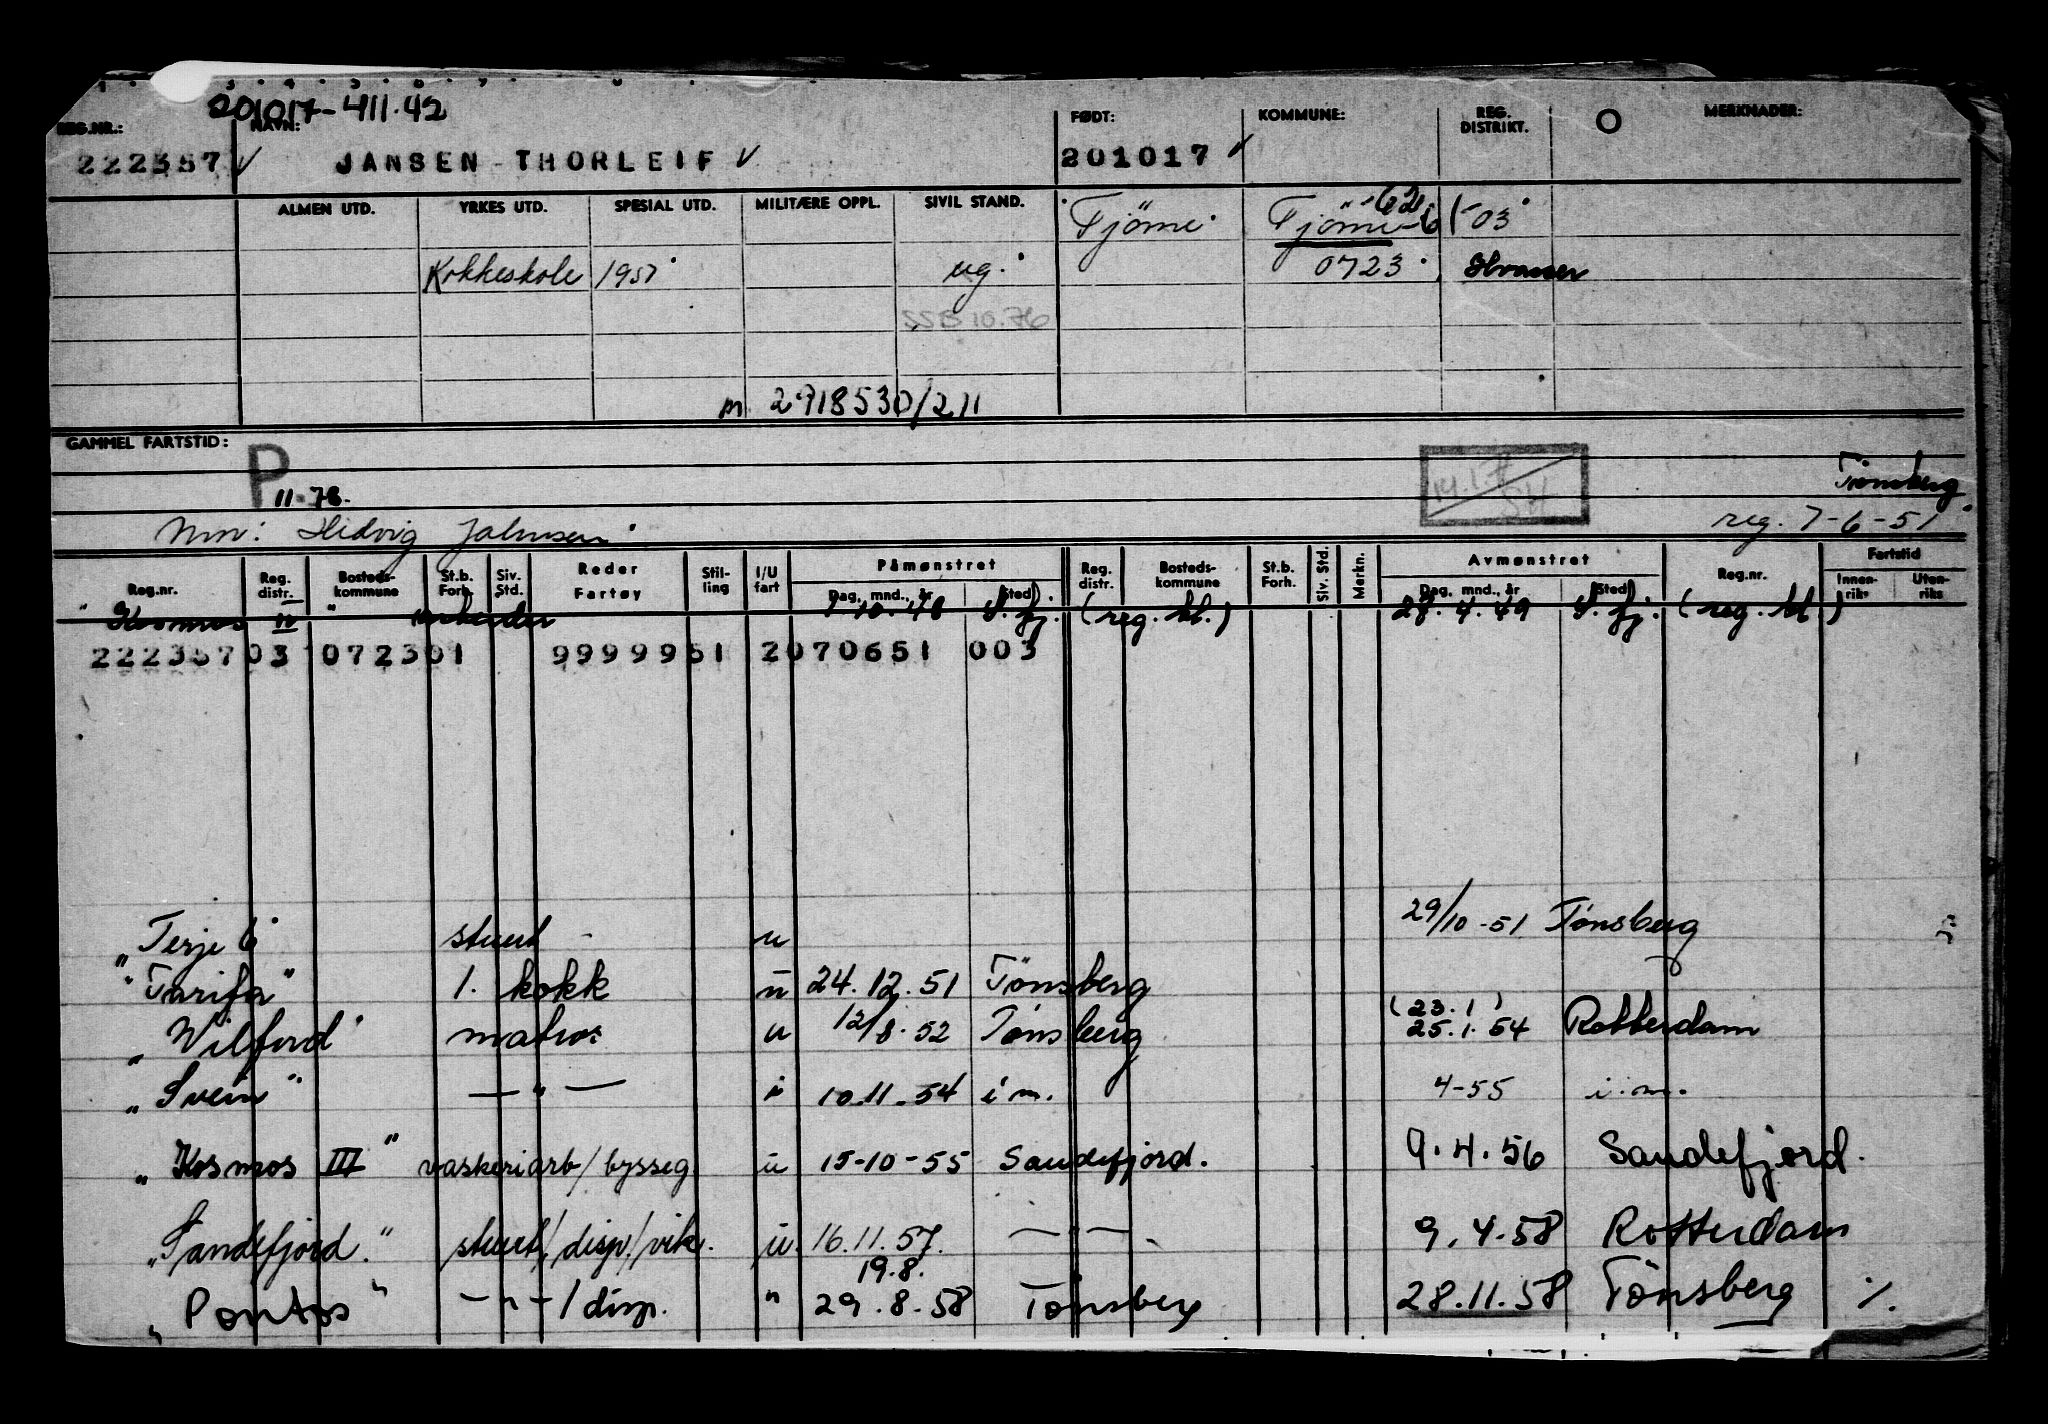 201017-411.42
REG.NR.: NAVN: FØDT: KOMMUNE: REG. DISTRIKT. MERKNADER:
222357 JANSEN THORLEIF 201017
ALMEN UTD. YRKES UTD. SPESIAL UTD. MILITÆRE OPPL. SIVIL STAND. Tjöme Tjöme 03
Kokkeskole 1951 ug. 0723 Hvasser
SSB 10.76
m 2918530/211
GAMMEL FARTSTID:
P 11-78. Tönsberg
Mor: Hedvig Johnsen reg. 7-6-51
Reg.nr. Reg. distr. Bosteds-kommune St.b. Forh. Siv. Std. Reder Fartøy Stil-ling I/U fart Påmønstret Dag, mnd., år Sted Reg. distr. Bosteds-kommune St.b. Forh. Siv. Std. Merkn. Avmønstret Dag, mnd., år Sted Reg.nr. Fartstid Innen-riks Uten-riks
"Kosmos IV" arbeider 10.48 S.fj. (reg. kl.) 28.4.49 S.fj. (reg. kl.)
222357 03 072301 9999951 2070651 003
"Terje 6 stuert - u 29/10-51 Tönsberg
"Tarifa" 1. kokk u 24.12.51 Tönsberg
"Wilford" matros u 12/8.52 Tönsberg (23.1) 25.1.54 Rotterdam
"Svein" — " — i 10.11.54 i m. 4-55 i.m.
"Kosmos III" vaskeriarb/bysseg u 15-10-55 Sandefjord. 9.4.56 Sandefjord.
"Sandefjord." stuert/disp/vik. u. 16.11.57. — " — 9.4.58 Rotterdam
19.8.
"Pontos" — " — / disp. " 29.8.58 Tönsberg 28.11.58 Tönsberg %